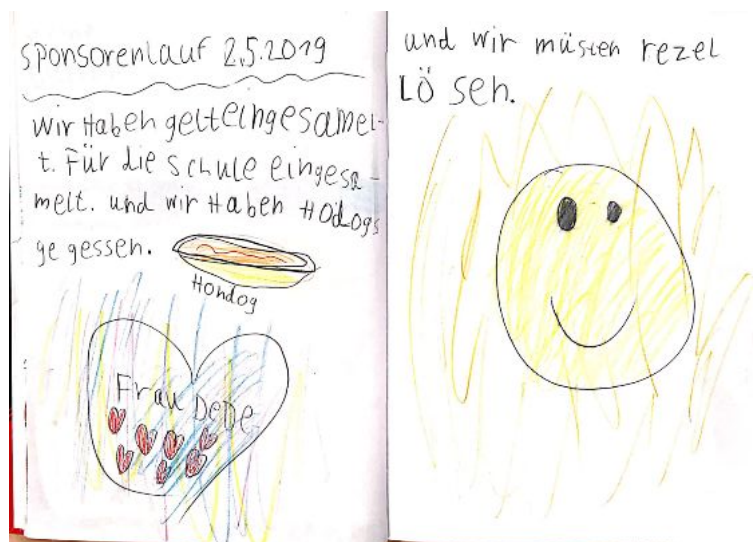 sponsorenlauf 2.5.2019
Wir Haben gelteingesamel-
t. Für die schule eingesa-
melt. und wir Haben Hodogs
ge gessen.
Hondog
Frau DeDe
und wir müsten rezel
Lö sen.